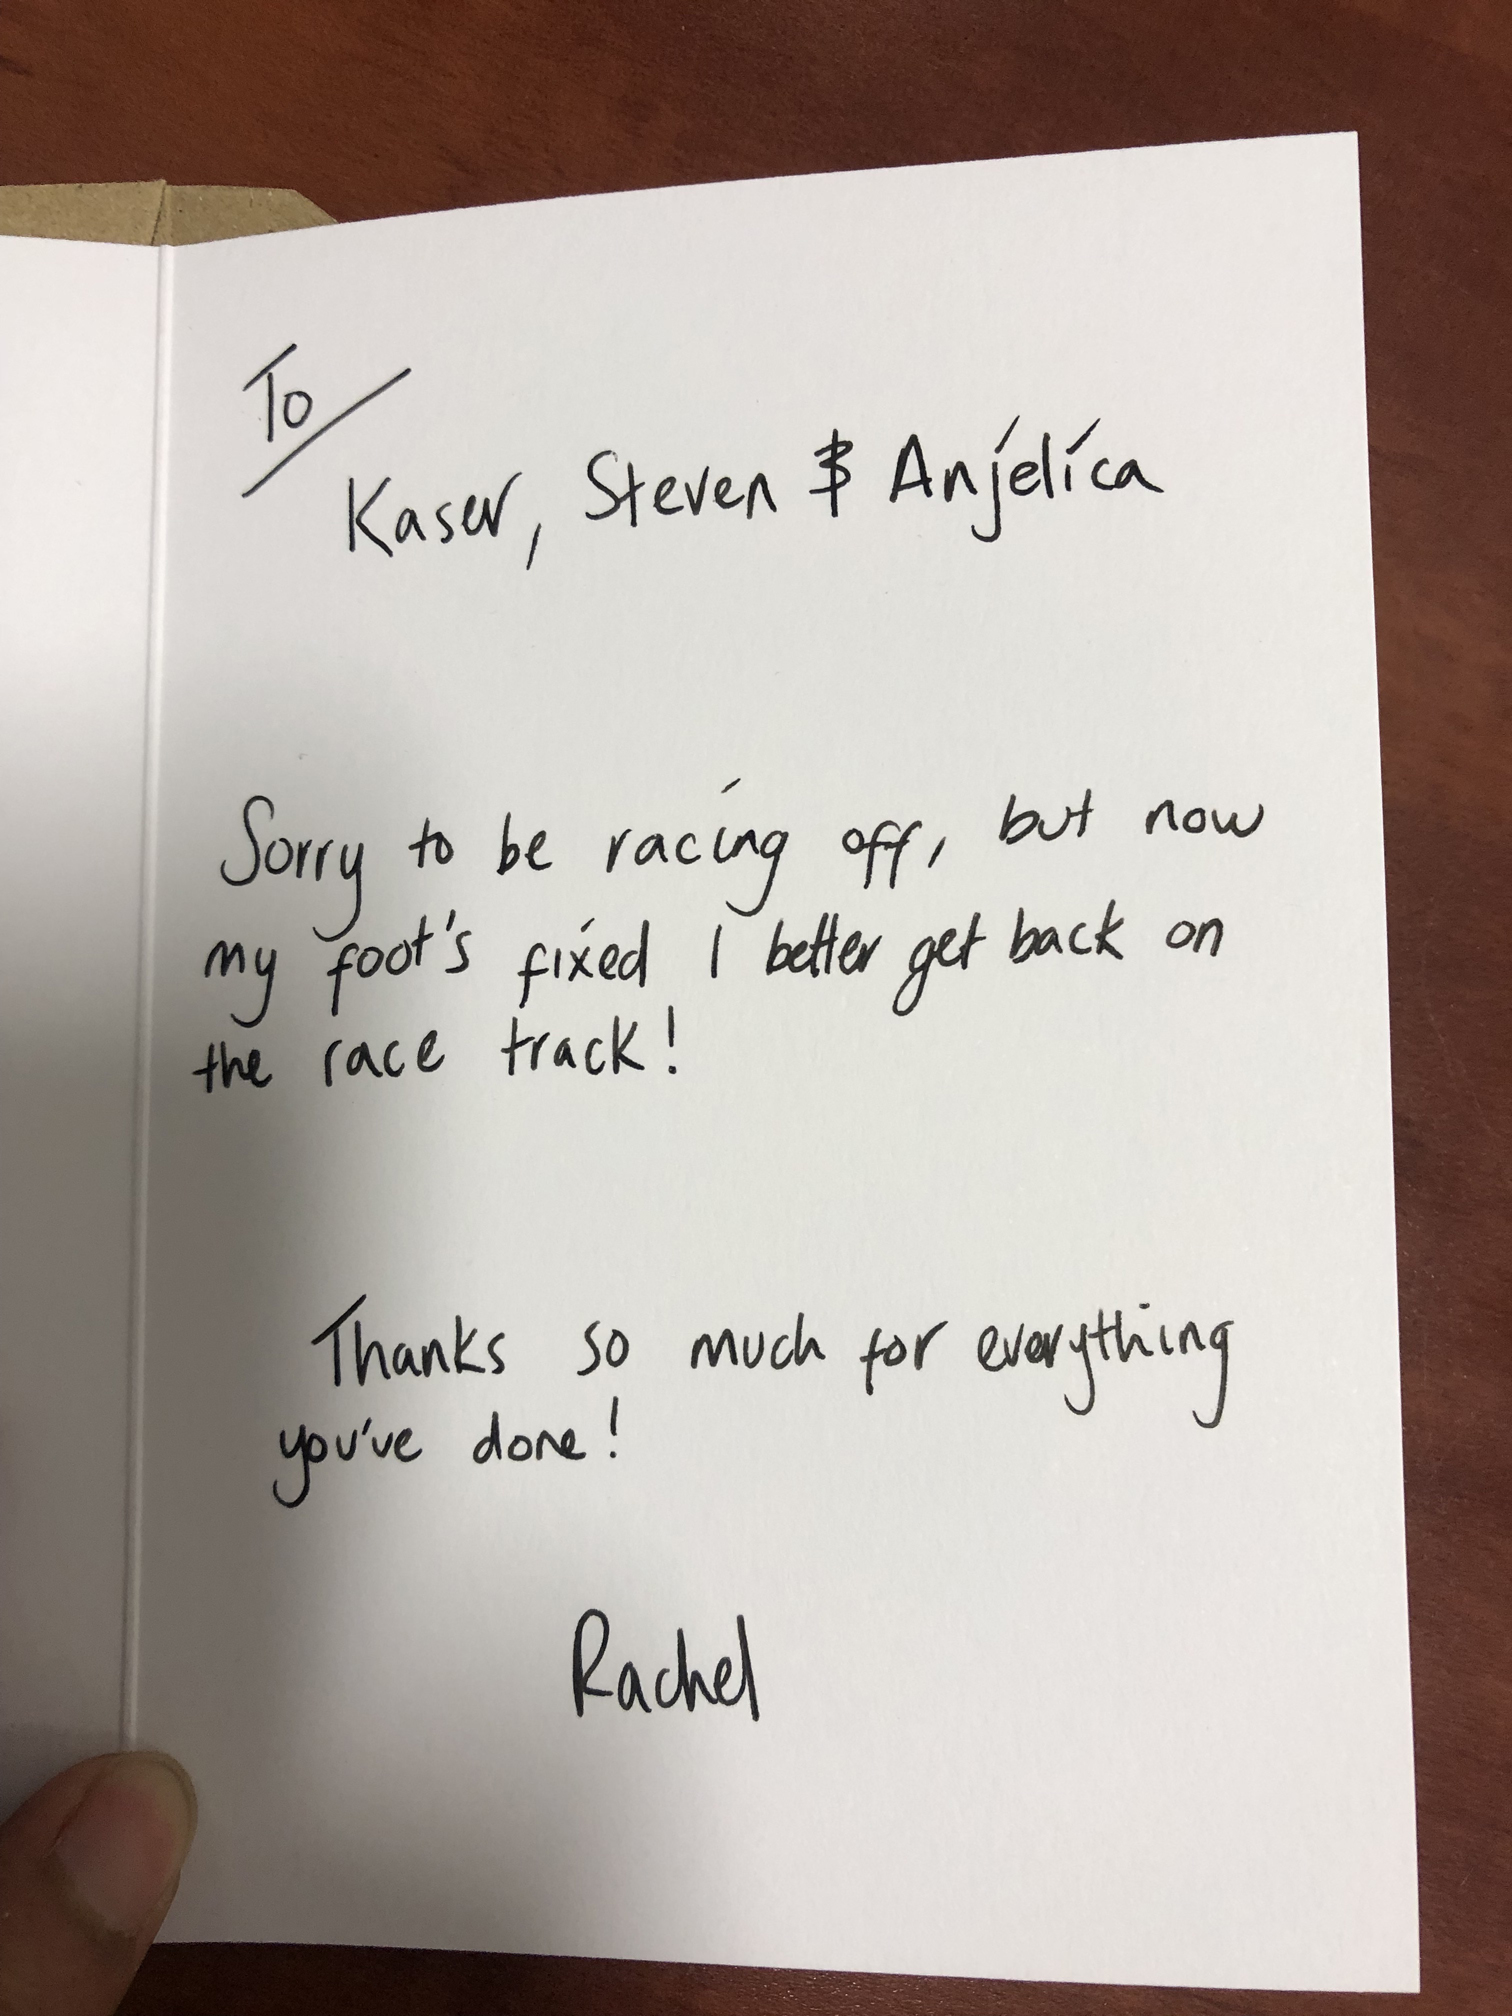 To
Kaser, Steven & Anjelica
Sorry to be racing off, but now
my foot's fixed I better get back on
the race track!
Thanks so much for everything
you've done!
Rachel